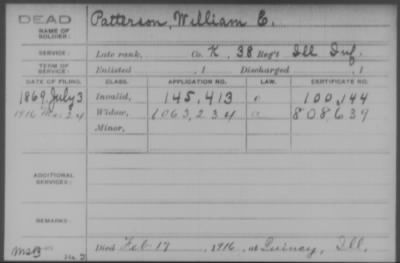 DEAD
NAME OF SOLDIER: Patterson, William E.
SERVICE: Late rank, Co. K, 38 Reg't Ill Inf.
TERM OF SERVICE: Enlisted , 1 Discharged , 1
DATE OF FILING. CLASS. APPLICATION NO. LAW. CERTIFICATE NO.
1869, July 3 Invalid, 145,413 100,144
1916 24 Widow, 1063,234 808,639
Minor,
ADDITIONAL SERVICES:
REMARKS:
Died Feb 17, 1916, at Quincy, Ill.